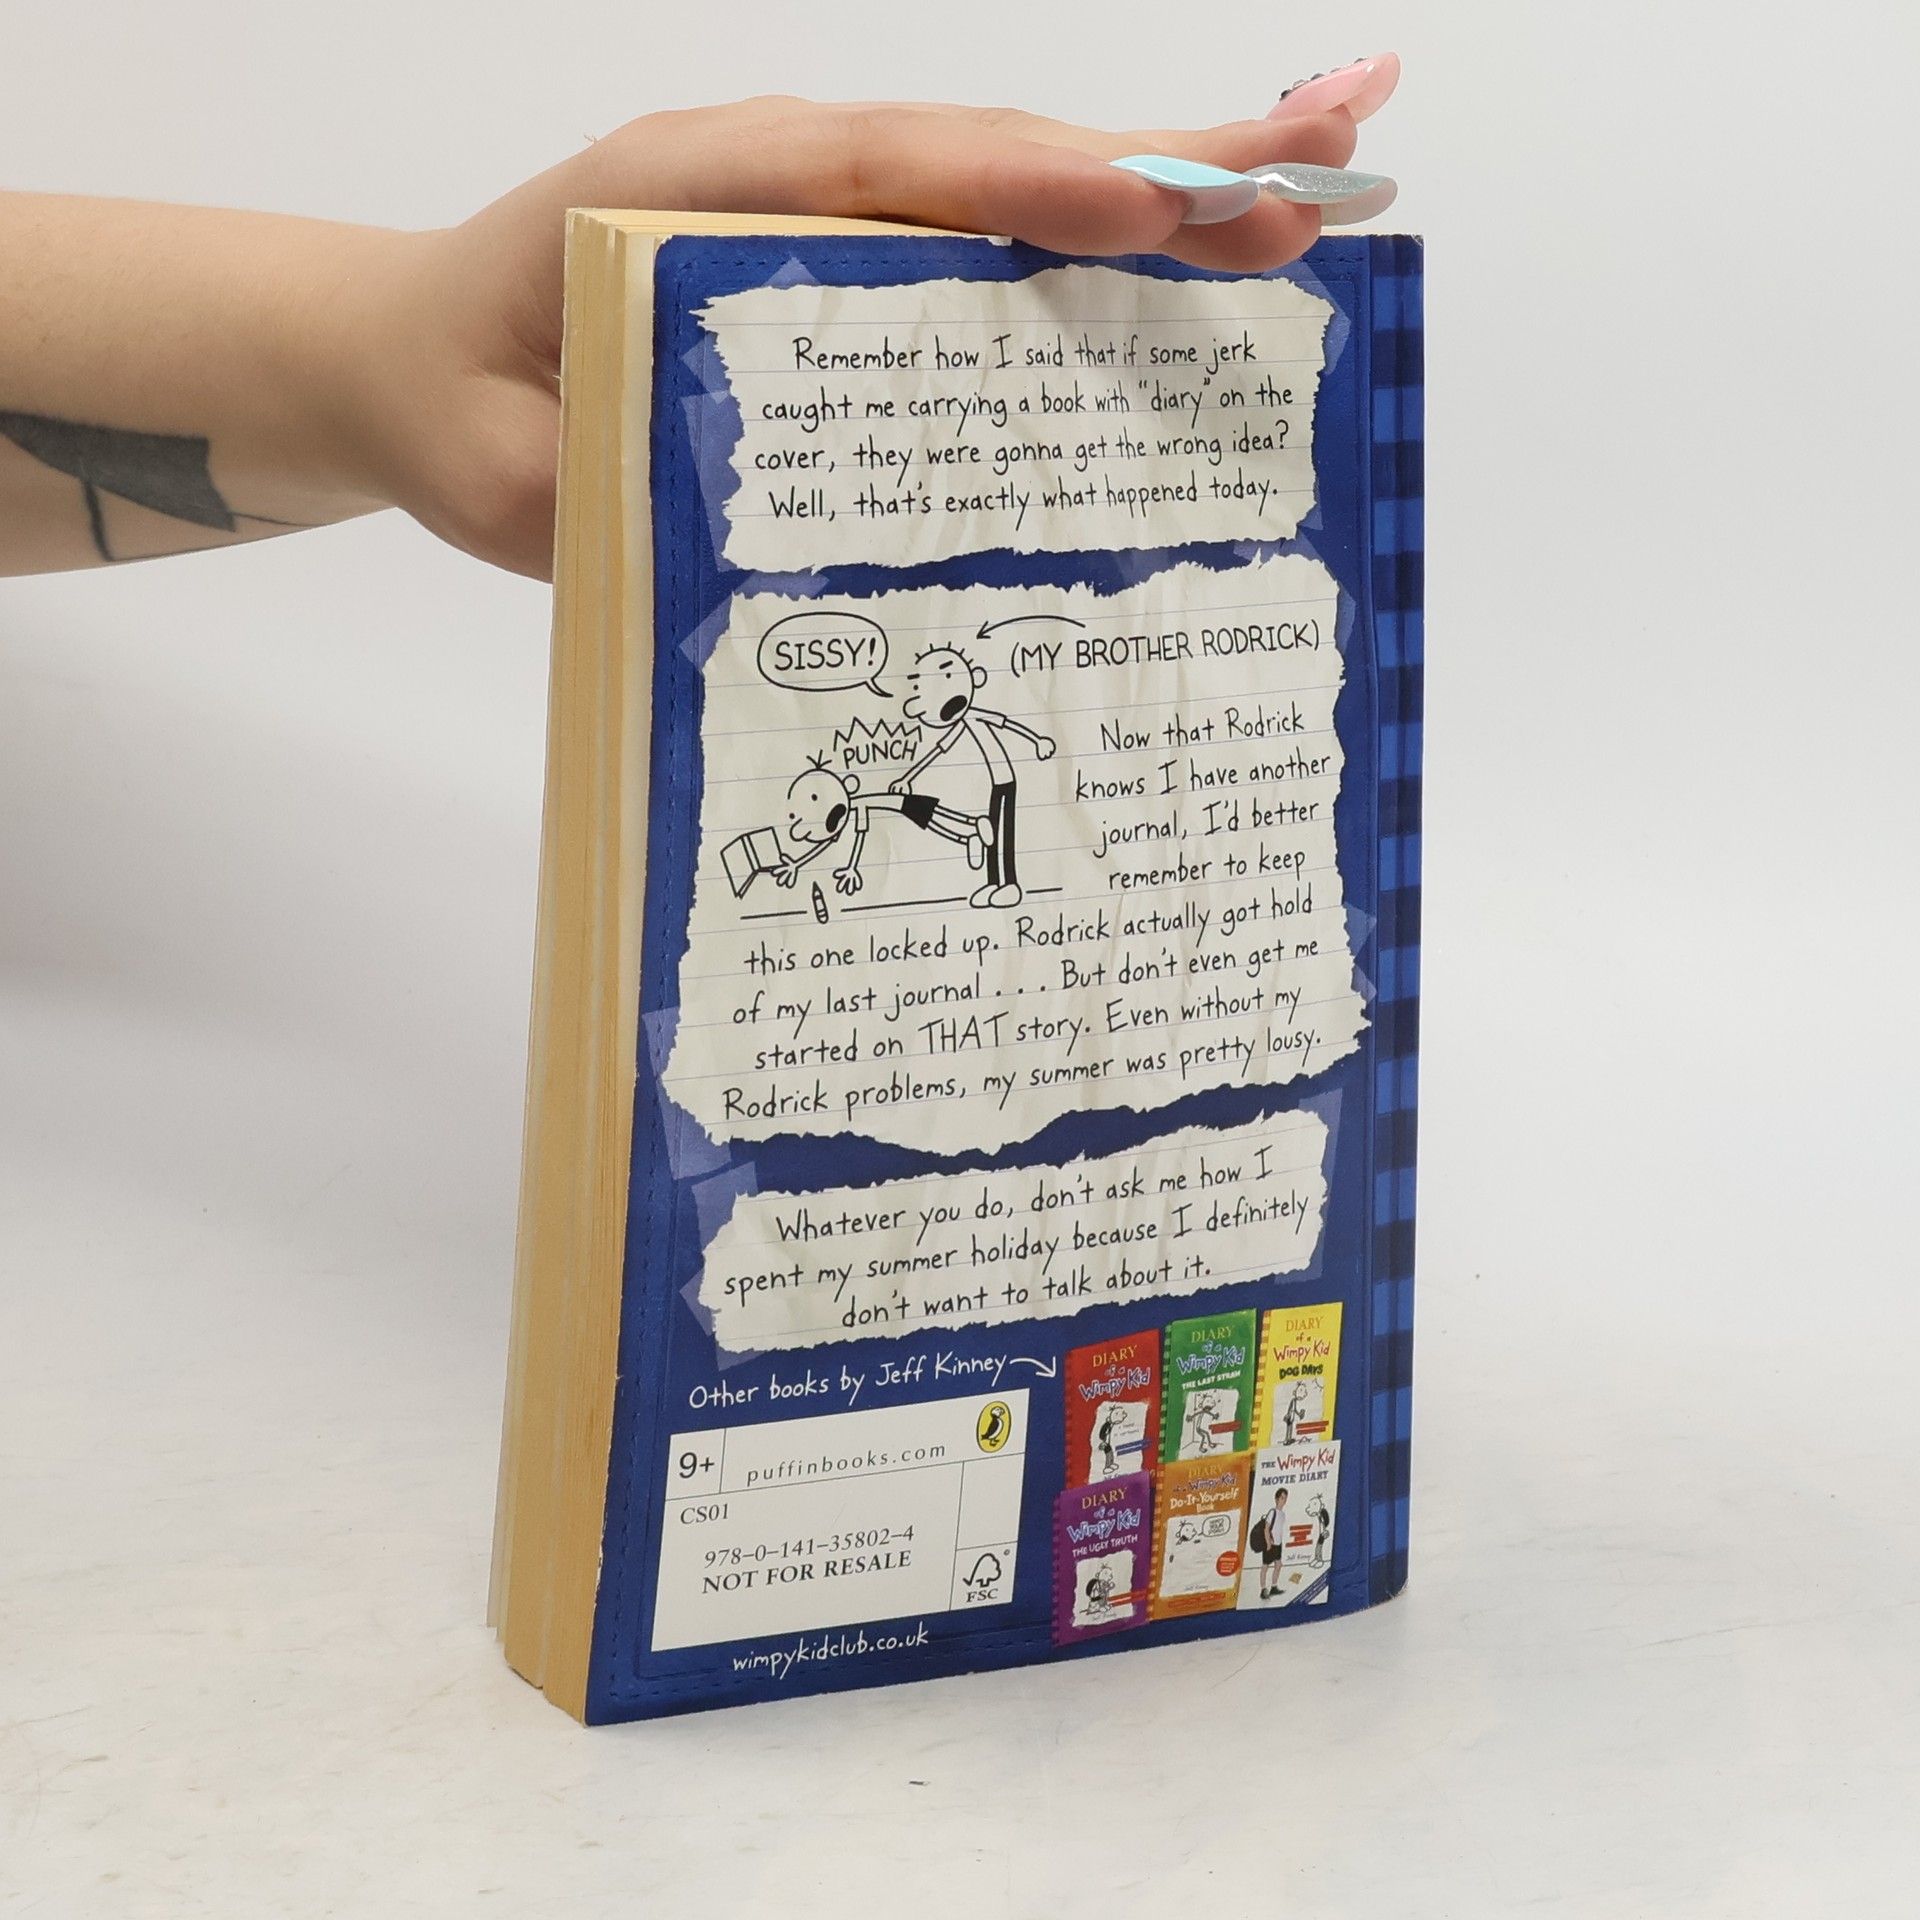 Remember how I said that if some jerk
caught me carrying a book with "diary" on the
cover, they were gonna get the wrong idea?
Well, that's exactly what happened today.
SISSY!
(MY BROTHER RODRICK)
PUNCH
Now that Rodrick
knows I have another
journal, I'd better
remember to keep
this one locked up. Rodrick actually got hold
of my last journal . . . But don't even get me
started on THAT story. Even without my
Rodrick problems, my summer was pretty lousy.
Whatever you do, don't ask me how I
spent my summer holiday because I definitely
don't want to talk about it.
Other books by Jeff Kinney
9+
puffinbooks.com
CS01
978-0-141-35802-4
NOT FOR RESALE
FSC
wimpykidclub.co.uk
DIARY
of a
Wimpy Kid
DIARY
of a
Wimpy Kid
THE LAST STRAW
DIARY
of a
Wimpy Kid
DOG DAYS
DIARY
of a
Wimpy Kid
THE UGLY TRUTH
DIARY
of a Wimpy Kid
Do-It-Yourself
Book
THE Wimpy Kid
MOVIE DIARY